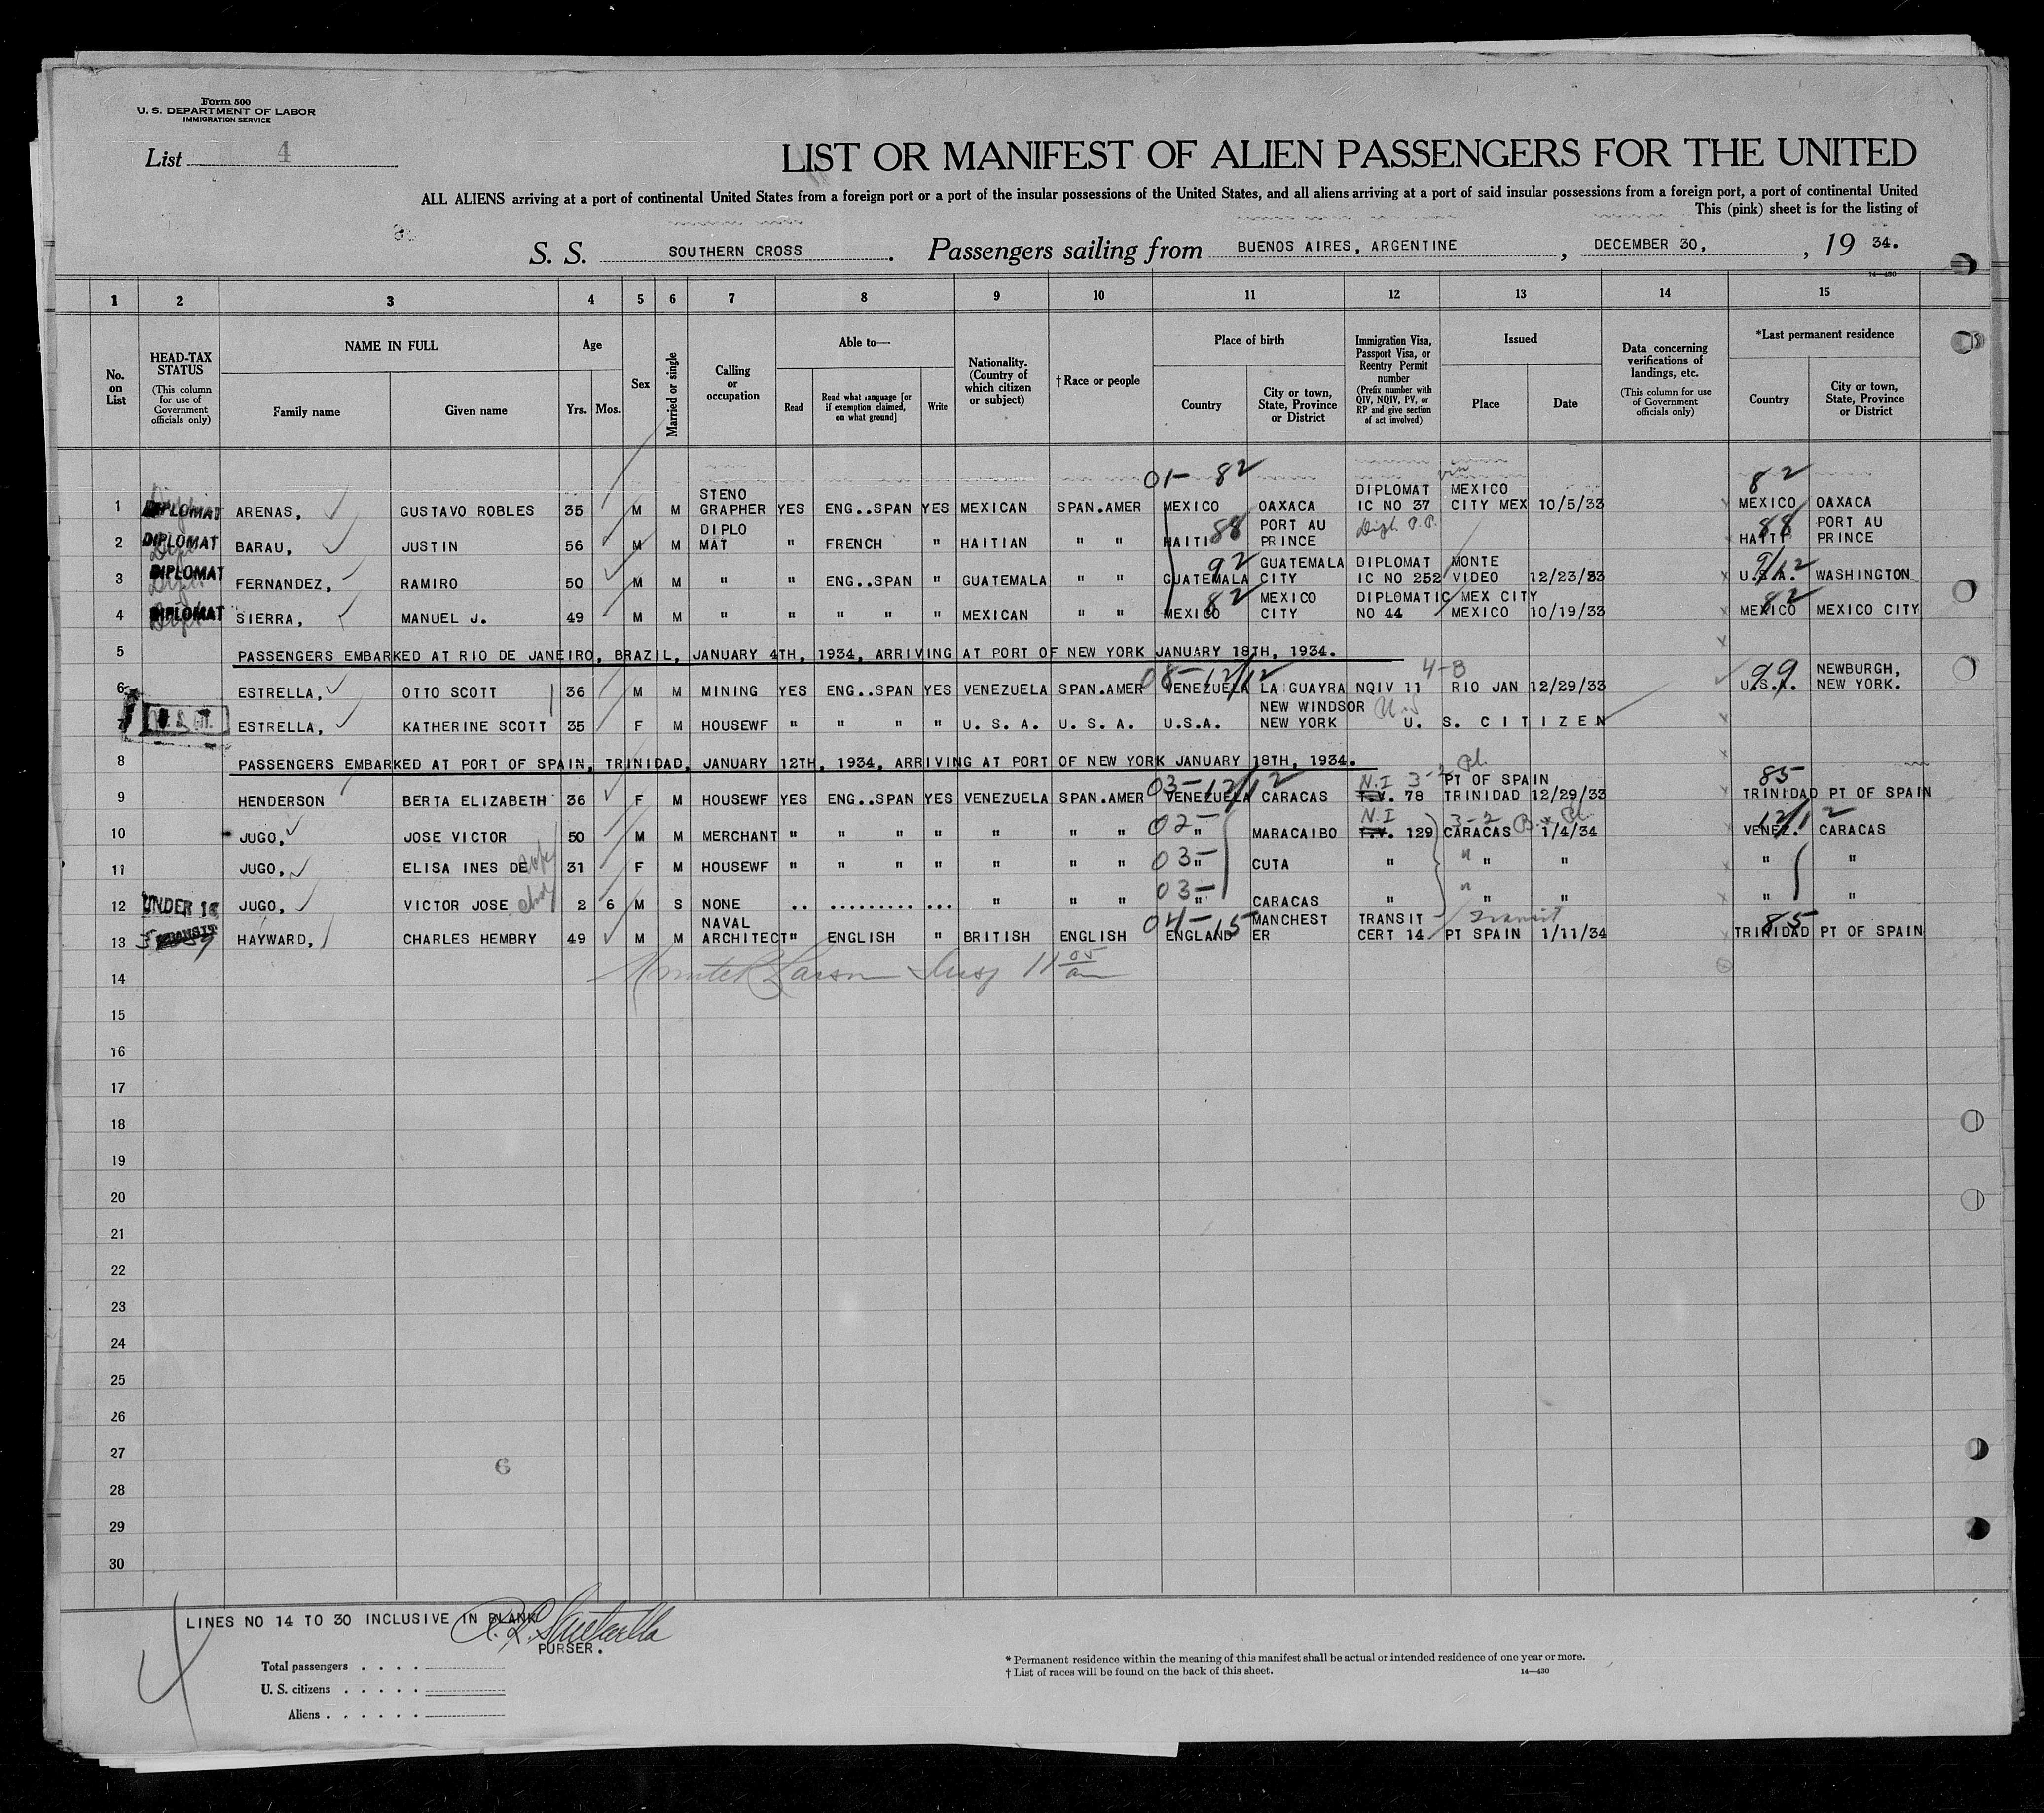 Form 500
U. S. DEPARTMENT OF LABOR
IMMIGRATION SERVICE
List 4
LIST OR MANIFEST OF ALIEN PASSENGERS FOR THE UNITED
ALL ALIENS arriving at a port of continental United States from a foreign port or a port of the insular possessions of the United States, and all aliens arriving at a port of said insular possessions from a foreign port, a port of continental United
This (pink) sheet is for the listing of
S. S. SOUTHERN CROSS. Passengers sailing from BUENOS AIRES, ARGENTINE, DECEMBER 30, , 19 34.
14—430
1 2 3 4 5 6 7 8 9 10 11 12 13 14 15
No. on List
HEAD-TAX STATUS (This column for use of Government officials only)
NAME IN FULL
Family name Given name
Age
Yrs. Mos.
Sex
Married or single
Calling or occupation
Able to—
Read Read what language [or if exemption claimed, on what ground] Write
Nationality. (Country of which citizen or subject)
†Race or people
Place of birth
Country City or town, State, Province or District
Immigration Visa, Passport Visa, or Reentry Permit number (Prefix number with QIV, NQIV, PV, or RP and give section of act involved)
Issued
Place Date
Data concerning verifications of landings, etc. (This column for use of Government officials only)
*Last permanent residence
Country City or town, State, Province or District
01- 82 82
1 DIPLOMAT ARENAS, GUSTAVO ROBLES 35 M M STENO GRAPHER YES ENG..SPAN YES MEXICAN SPAN.AMER MEXICO OAXACA DIPLOMAT IC NO 37 MEXICO CITY MEX 10/5/33 MEXICO OAXACA
2 DIPLOMAT BARAU, JUSTIN 56 M M DIPLO MAT " FRENCH " HAITIAN " " HAITI 88 PORT AU PRINCE Dipl. P.P. HAITI 88 PORT AU PRINCE
3 DIPLOMAT FERNANDEZ, RAMIRO 50 M M " " ENG..SPAN " GUATEMALA " " GUATEMALA 92 GUATEMALA CITY DIPLOMAT IC NO 252 MONTE VIDEO 12/23/33 U.S.A. WASHINGTON
4 DIPLOMAT SIERRA, MANUEL J. 49 M M " " " " " MEXICAN " " MEXICO 82 MEXICO CITY DIPLOMATIC NO 44 MEX CITY MEXICO 10/19/33 MEXICO 82 MEXICO CITY
5 PASSENGERS EMBARKED AT RIO DE JANEIRO, BRAZIL, JANUARY 4TH, 1934, ARRIVING AT PORT OF NEW YORK JANUARY 18TH, 1934.
08-12/12 4-3 99
6 ESTRELLA, OTTO SCOTT 36 M M MINING YES ENG..SPAN YES VENEZUELA SPAN.AMER VENEZUELA LA GUAYRA NQIV 11 RIO JAN 12/29/33 U.S.A. NEWBURGH, NEW YORK.
7 ESTRELLA, KATHERINE SCOTT 35 F M HOUSEWF " " " " U. S. A. U. S. A. U.S.A. NEW WINDSOR NEW YORK U. S. CITIZEN
8 PASSENGERS EMBARKED AT PORT OF SPAIN, TRINIDAD, JANUARY 12TH, 1934, ARRIVING AT PORT OF NEW YORK JANUARY 18TH, 1934.
03-12/12 N.I 3-2 Pl. 85
9 HENDERSON BERTA ELIZABETH 36 F M HOUSEWF YES ENG..SPAN YES VENEZUELA SPAN.AMER VENEZUELA CARACAS T.V. 78 PT OF SPAIN TRINIDAD 12/29/33 TRINIDAD PT OF SPAIN
02- N.I 3-2 12/12
10 JUGO, JOSE VICTOR 50 M M MERCHANT " " " " " " " " MARACAIBO T.V. 129 CARACAS 1/4/34 VENEZ. CARACAS
11 JUGO, ELISA INES DE wife 31 F M HOUSEWF " " " " " " " 03- " CUTA " " " " " "
12 UNDER 16 JUGO, VICTOR JOSE 2 6 M S NONE .. ......... ... " " " 03- " CARACAS " " " " " "
04-15 Transit 85
13 TRANSIT HAYWARD, CHARLES HEMBRY 49 M M NAVAL ARCHITECT " ENGLISH " BRITISH ENGLISH ENGLAND MANCHEST ER TRANSIT CERT 14 PT SPAIN 1/11/34 TRINIDAD PT OF SPAIN
Larson Insp 11 05 am
14
15
16
17
18
19
20
21
22
23
24
25
26
27
6
28
29
30
4
LINES NO 14 TO 30 INCLUSIVE IN BLANK
PURSER.
Total passengers . . . .
U. S. citizens . . . . .
Aliens . . . . . .
* Permanent residence within the meaning of this manifest shall be actual or intended residence of one year or more.
† List of races will be found on the back of this sheet.
14—430